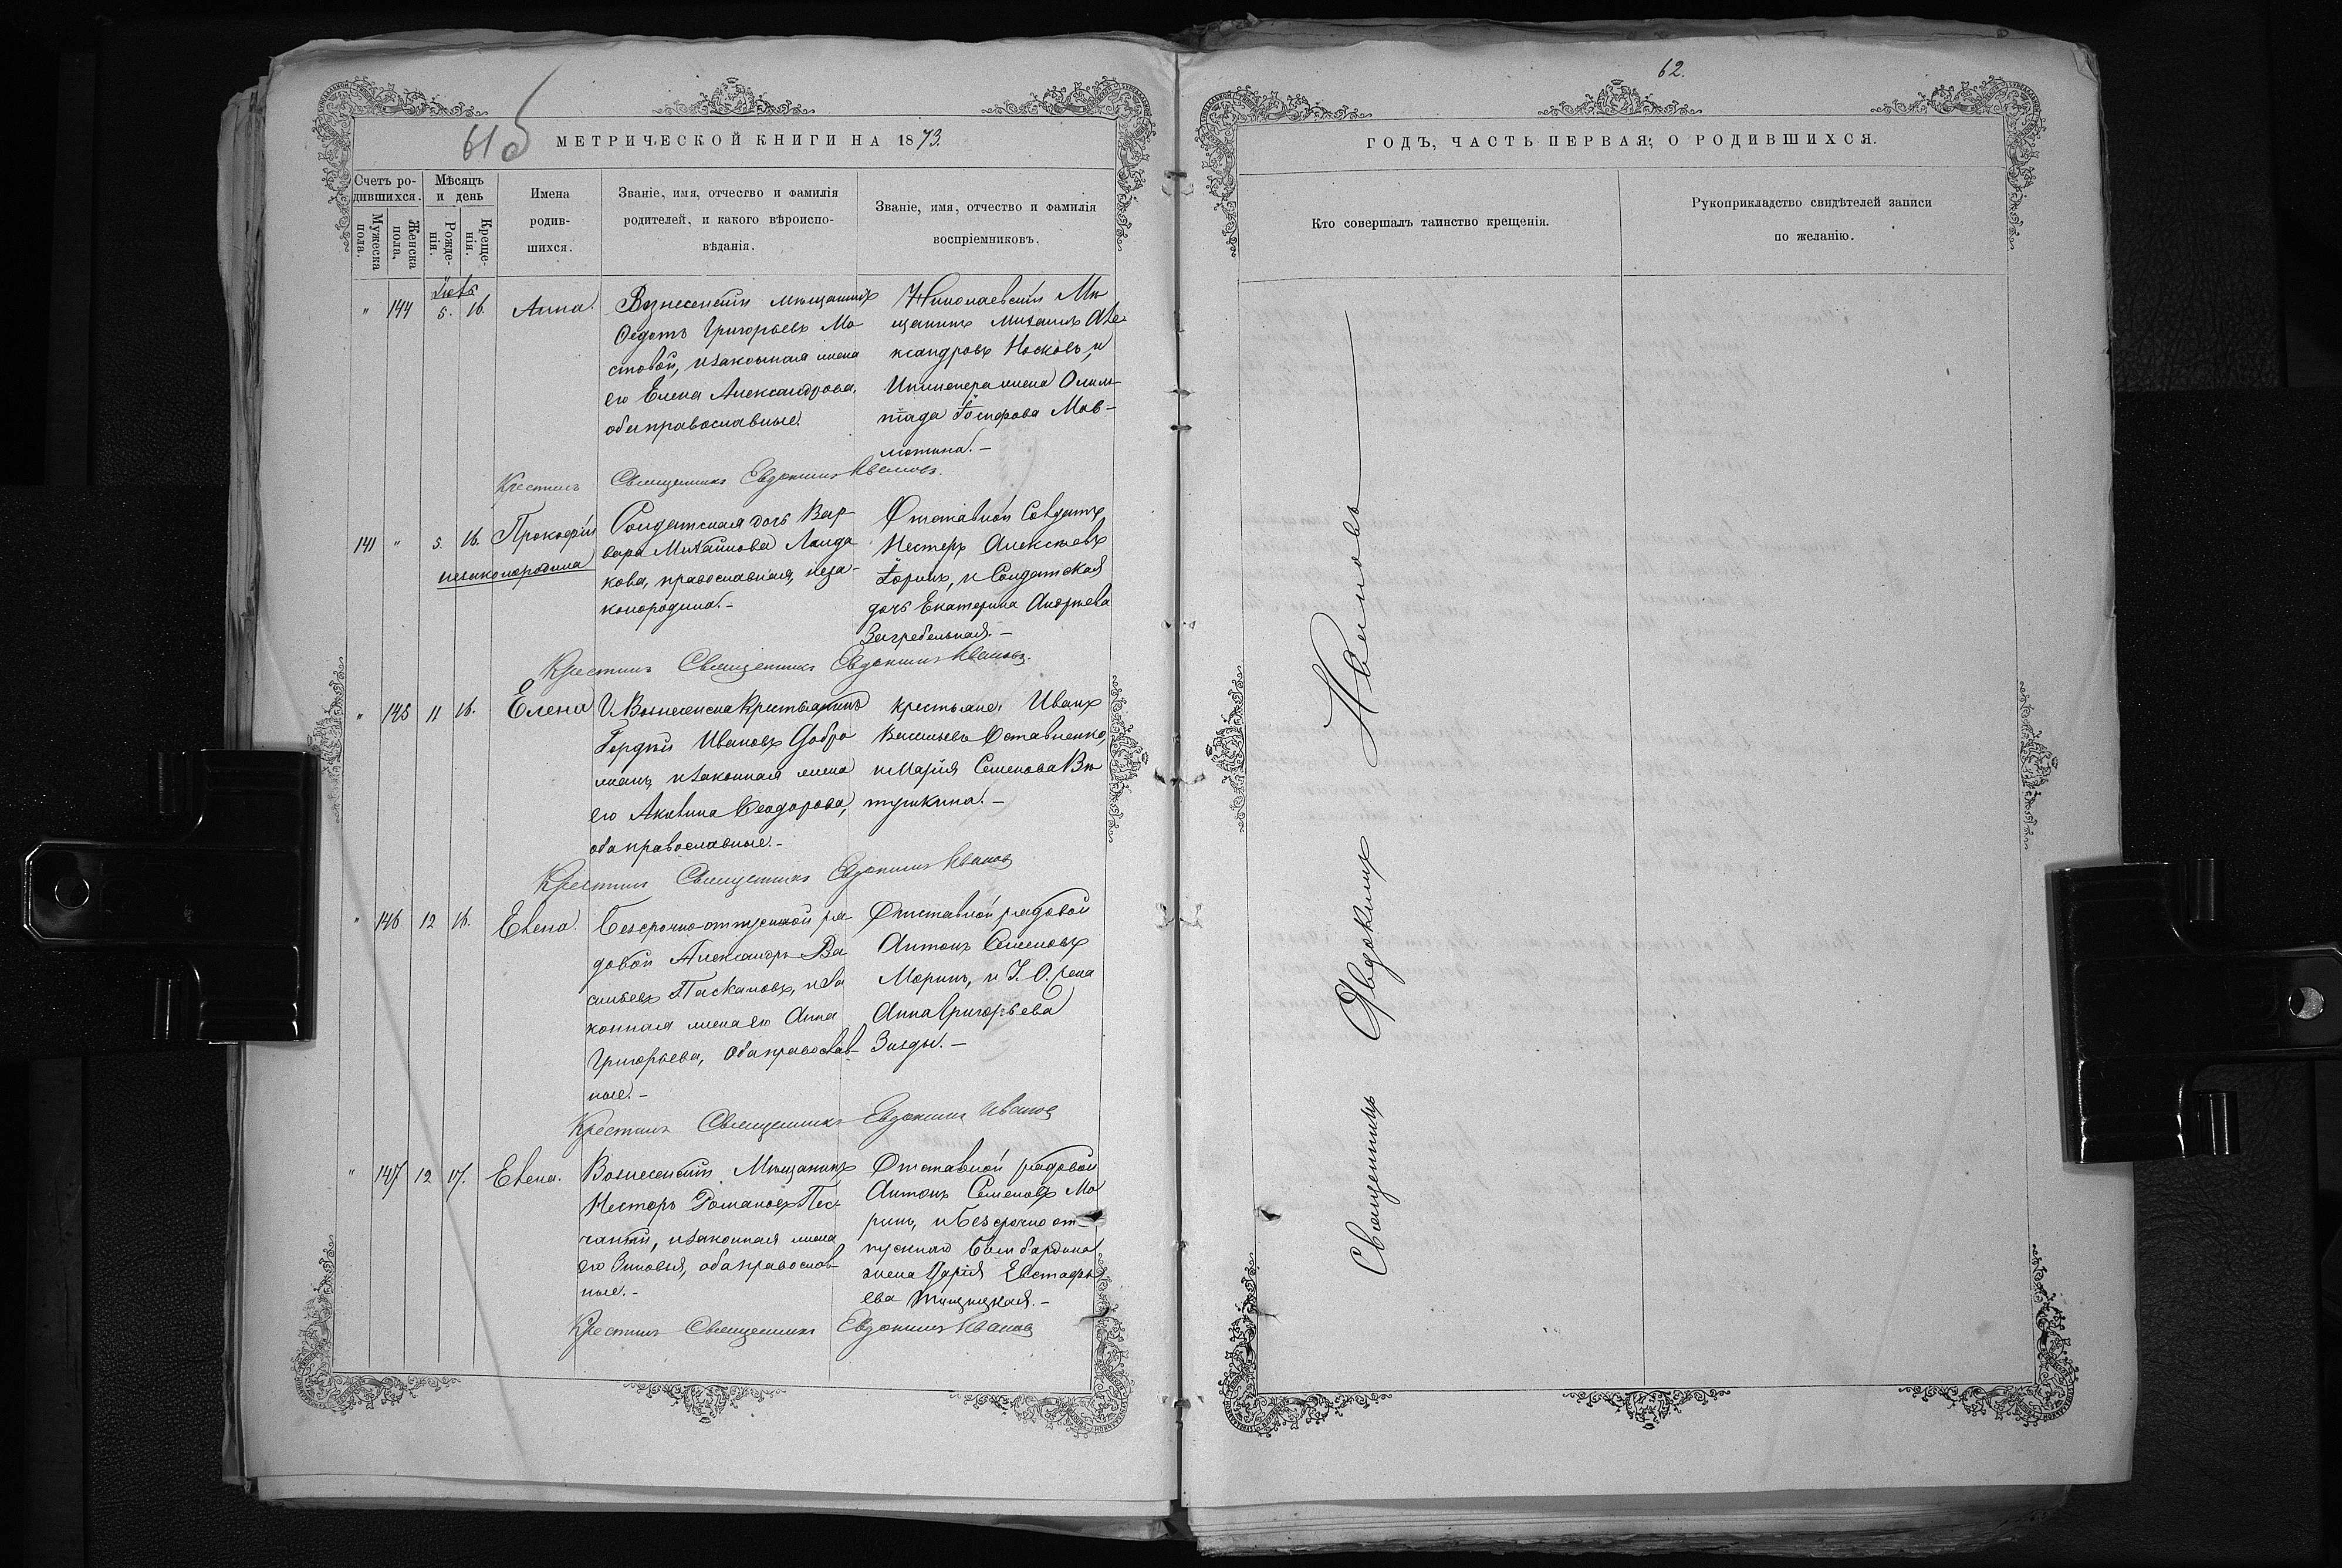 61б
МЕТРИЧЕСКОЙ КНИГИ НА 1873.
Счетъ ро-
дившихся.
Мужеска
пола.
Женска
пола.
Мѣсяцъ
и день
Рожде-
нія.
Креще-
нія.
Имена
родив-
шихся.
Званіе, имя, отчество и фамилія
родителей, и какого вѣроиспо-
вѣданія.
Званіе, имя, отчество и фамилія
воспріемниковъ.
" 144 5. 16. Анна.
Вознесенскій мѣщанинъ
Ѳедотъ Григорьевъ Мо-
стовой, и законная жена
его Елена Александрова,
оба православные.
Николаевскій Мѣ
щанинъ Михаилъ Але-
ксандровъ Носковъ, и
жена Олим-
піада Іосифова Мав-
Крестилъ Священникъ Евдокимъ Ивановъ.
141 " 5. 16. Прокофій
незаконорожденна
Солдатская дочь Вар-
вара Михайлова
кова, православная, неза-
конорождена.-
Отставной Солдатъ
Нестеръ Алексѣевъ
Іоринъ, и Солдатская
дочь Екатерина Андреева
Загребельная.-
Крестилъ Священникъ Евдокимъ Ивановъ.
" 145 11 16. Елена
Г. Вознесенска Крестьянинъ
Гордѣй Ивановъ Добро
жанъ, и законная жена
его Акилина Ѳеодорова,
оба православные.-
крестьяне: Иванъ
Васильевъ Оставненко,
и Марія Семенова Вѣ
тушкина.-
Крестилъ Священникъ Евдокимъ Ивановъ
" 146 12 16. Елена.
Безсрочно отпускной ря-
довой Александръ Ва
сильевъ Паскаловъ, и за
конная жена его Анна
Григорьева, оба православ-
ные.-
Отставной рядовой
Антонъ Семеновъ
Моринъ, и
Анна Григорьева
Зизды.-
Крестилъ Священникъ Евдокимъ Иванов
" 147 12 17. Елена.
Вознесенскій Мѣщанинъ
Несторъ Романовъ Пес-
чаный, и законная жена
его Зиновія, оба православ-
ные.-
Отставной рядовой
Антонъ Семеновъ Мо
ринъ, и безсрочно от-
пускнаго бомбардира
жена Дарія Евстафь
ева
Крестилъ Священникъ Евдокимъ Иванов
62.
ГОДЪ, ЧАСТЬ ПЕРВАЯ, О РОДИВШИХСЯ.
Кто совершалъ таинство крещенія.
Рукоприкладство свидѣтелей записи
по желанію.
Священникъ Евдокимъ Ивановъ